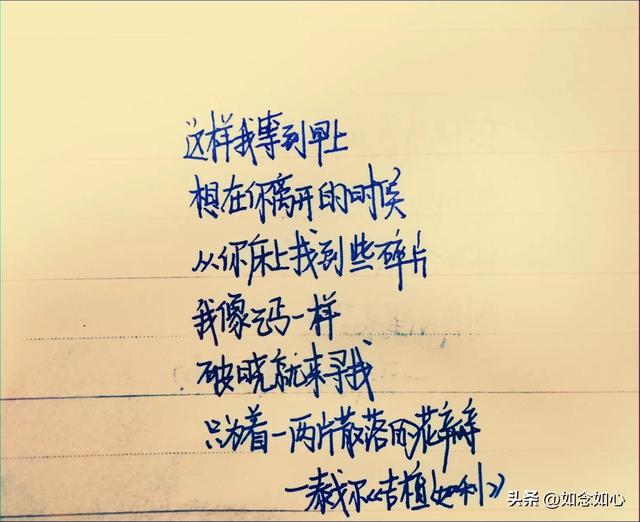 这样我等到早上
想在你离开的时候
从你床上找到些碎片
我像乞丐一样
破晓就来寻找
只为着一两片散落的花瓣
—泰戈尔《吉檀迦利》
头条 @如念如心